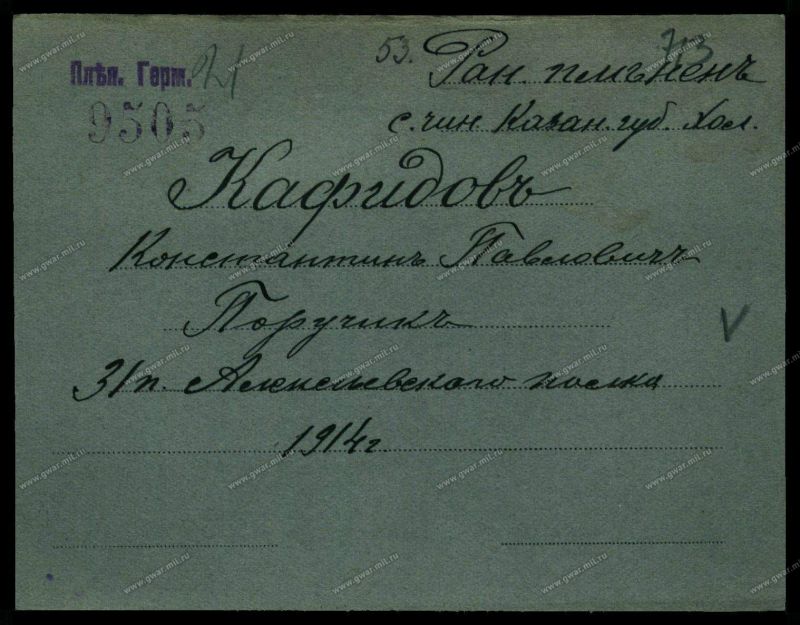 53. 713
Плѣн. Герм. 21
Ран. плѣненъ
9505
с. чин. Казан. губ. Хол.
Кафидовъ
Константинъ Павловичъ
Поручикъ
31 п. Алексеевского полка
1914 г.
V
www.gwar.mil.ru